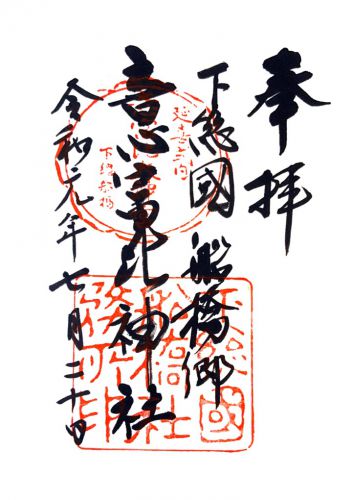 奉拝
下総國 船橋郷
意富比神社
令和元年七月二十日
延喜式内